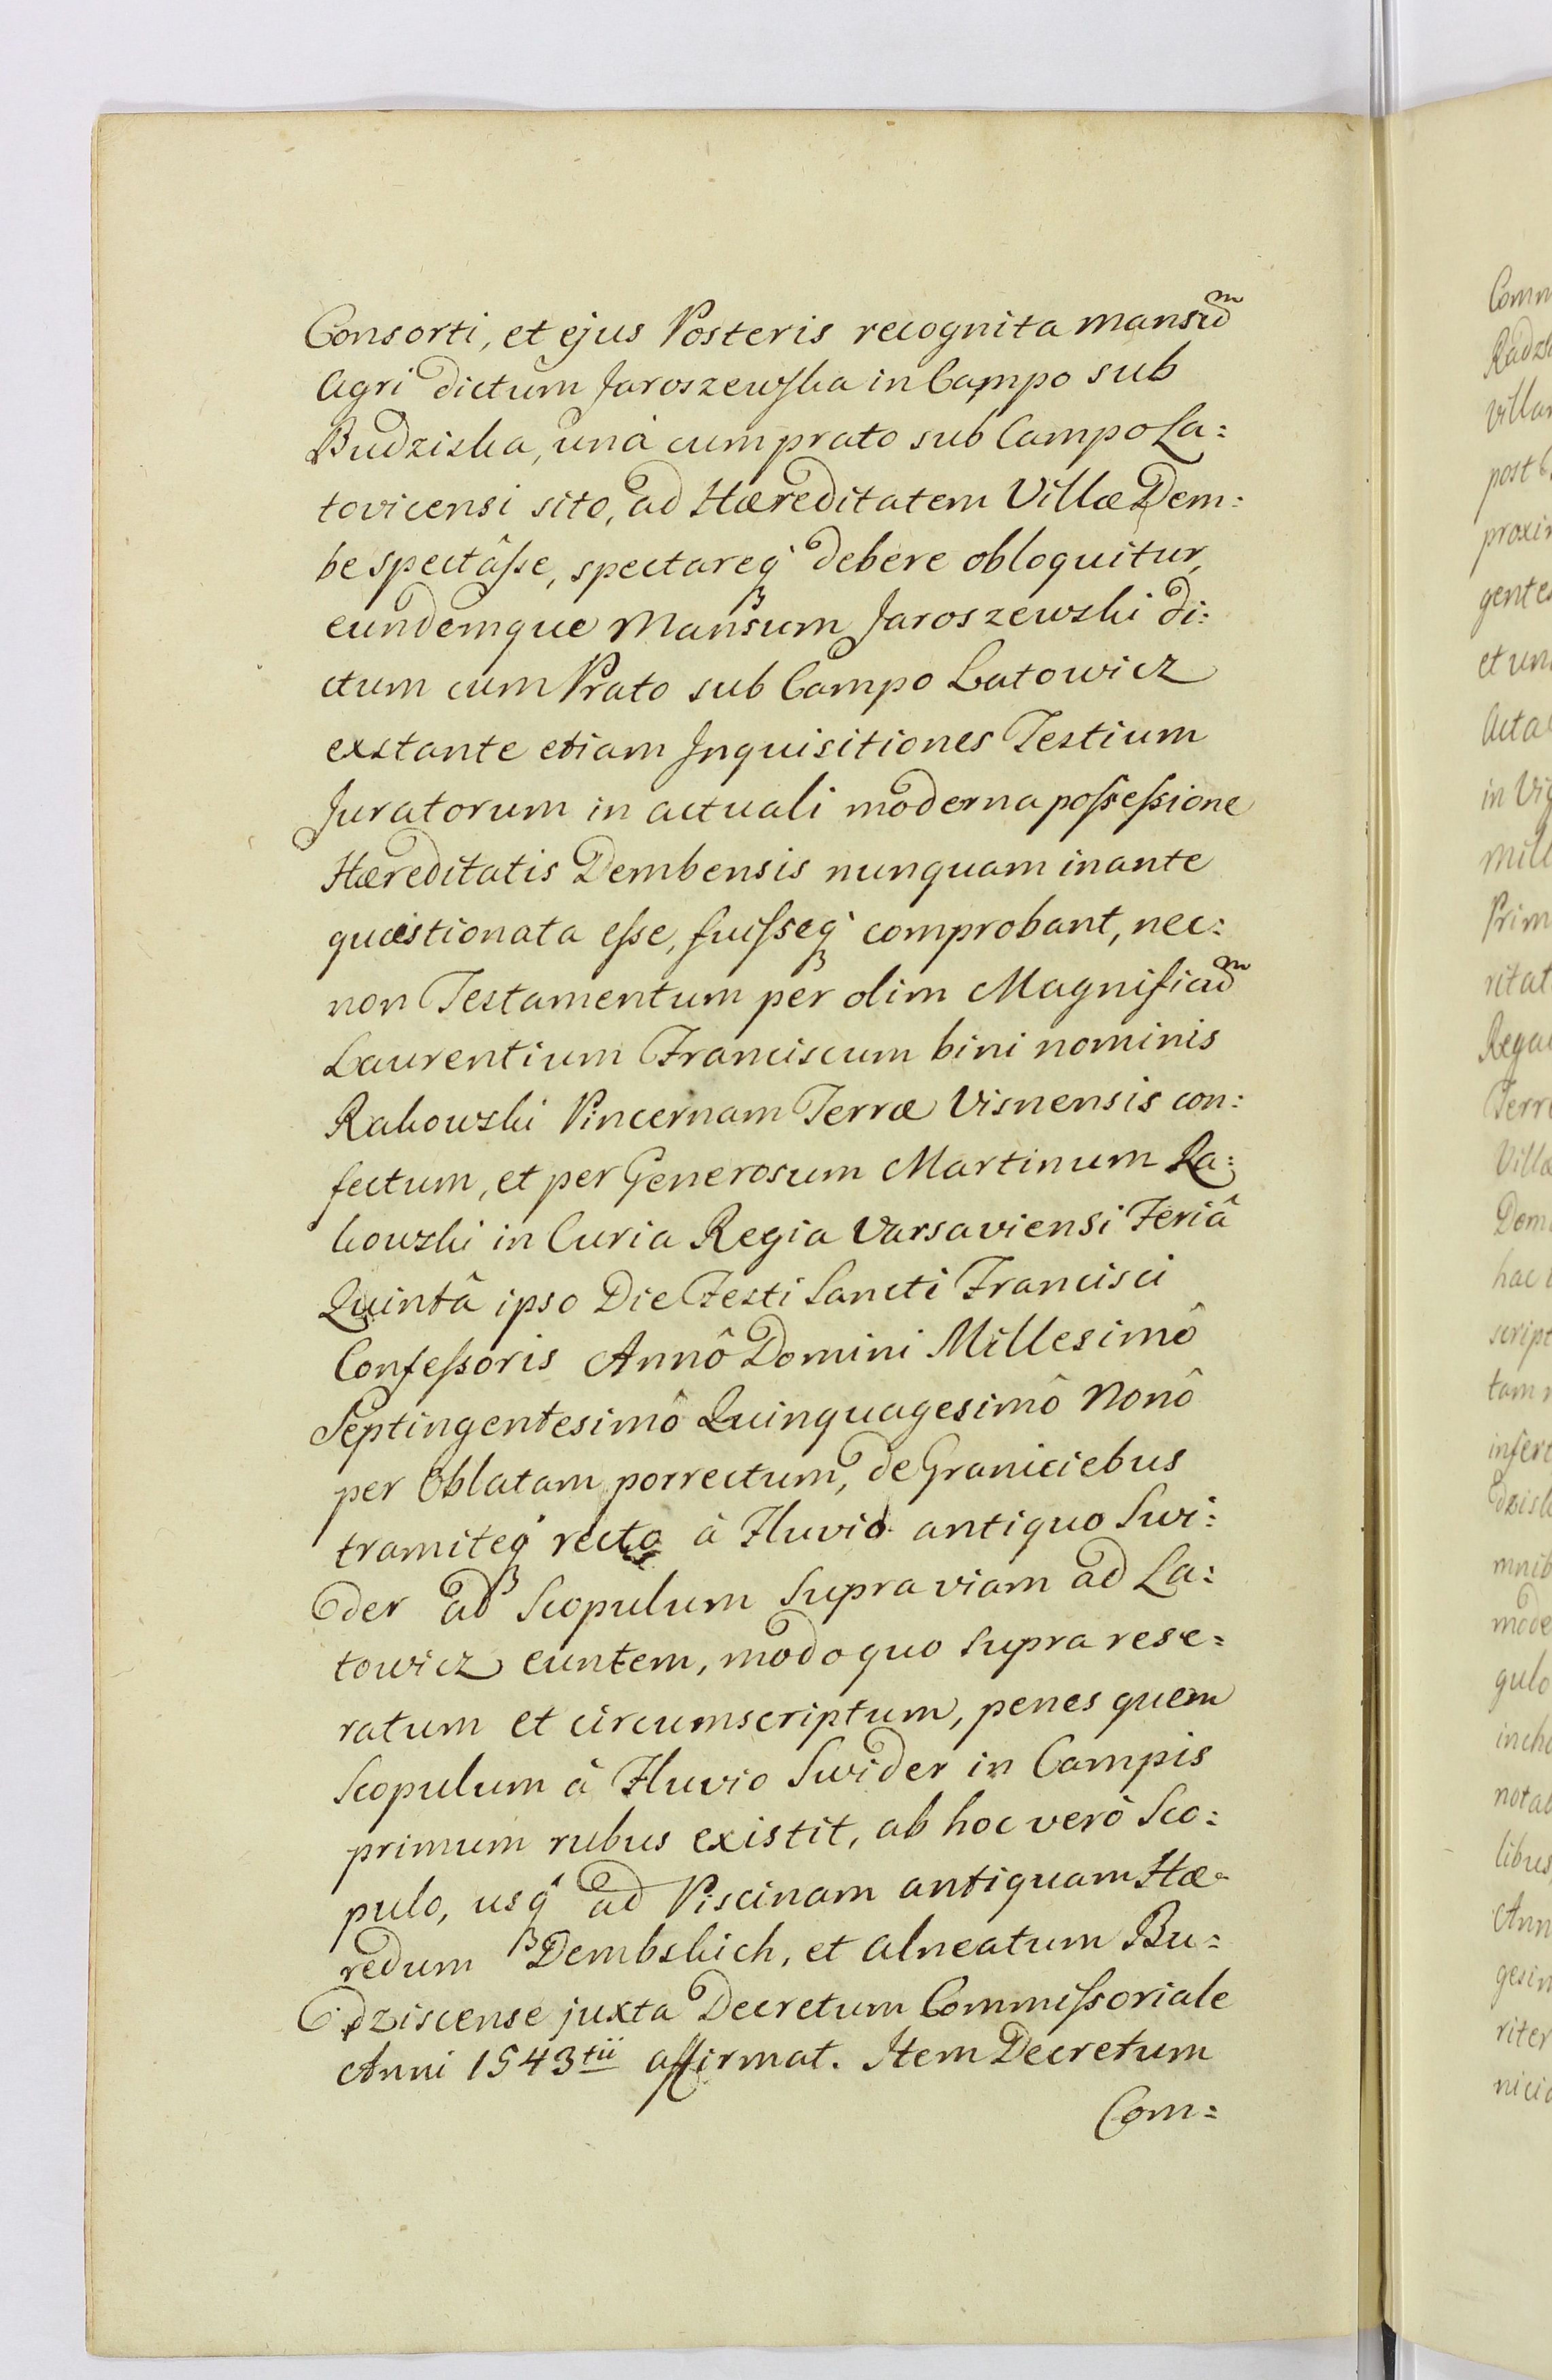 Consorti, et ejus Posteris recognita mansū̃m
Agri dictum Jaroszewska in Campo sub
Budziska, unà cum prato sub Campo La:
tovicensi sito, ad Hæreditatem Villæ Dem:
be spectâsse, spectareq́ue debere obloquitur,
eundemque Mansum Jaroszewski di:
ctum cum Prato sub Campo Latowicz
exstante etiam Inquisitiones Testium
Juratorum in actuali moderna possessione
Hæreditatis Dembensis nunquam inante
quæstionata esse, fuisseq́ue comprobant, nec:
non Testamentum per olim Magnificum
Laurentium Franciscum bini nominis
Rakowski Pincernam Terræ Visnensis con:
fectum, et per Generosum Martinum Ra:
kowski in Curia Regia Varsaviensi Feriâ
Quintâ ipso Die Festi Sancti Francisci
Confessoris Annô Domini Millesimô
Septingentesimô Quinquagesimô Nonô
per Oblatam porrectum, de Graniciebus
tramiteq́ue recto à Fluvio antiquo Swi:
der ad Scopulum supra viam ad La:
towicz euntem, modo quo supra rese:
ratum et circumscriptum, penes quem
Scopulum à Fluvio Swider in Campis
primum rubus existit, ab hoc verò Sco:
pulo, usq́ue ad Piscinam antiquam Hæ:
redum Dembskich, et alneatum Bu:
dziscense juxta Decretum Commissoriale
Anni 1543tii affirmat. Item Decretum
Com: